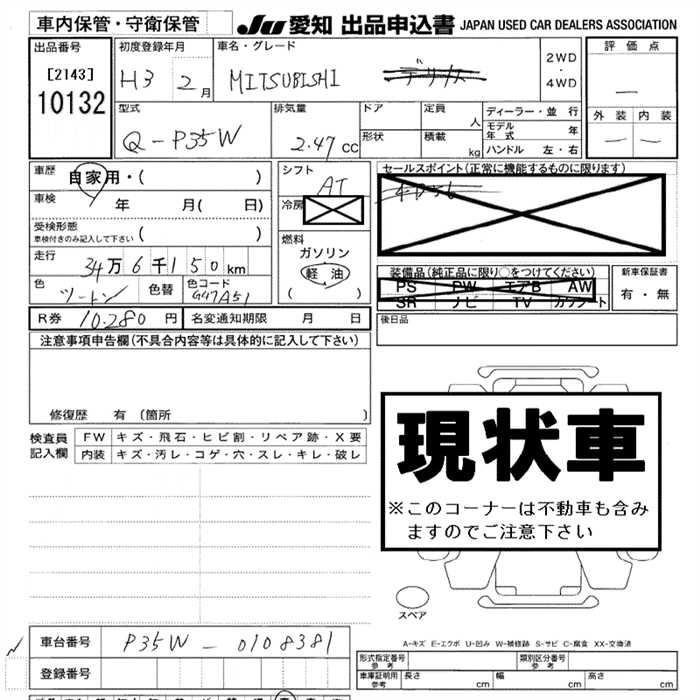 車内保管・守衛保管 JU 愛知 出品申込書 JAPAN USED CAR DEALERS ASSOCIATION
出品番号 初度登録年月 車名・グレード 2WD・4WD 評価点
[2143]
10132
H3 2月 MITSUBISHI デリカ
—
外装 内装
— —
型式 排気量 ドア 定員 人 ディーラー・並行
Q-P35W 2.47cc 形状 積載 kg モデル年式 年
ハンドル 左・右
車歴 自家用・( ) シフト AT セールスポイント(正常に機能するものに限ります)
車検 年 月( 日) 冷房
4D56
受検形態
車検付きのみ記入して下さい ( )
燃料
ガソリン
軽油
( )
走行 34万6千150km
装備品(純正品に限り○をつけてください) 新車保証書
PS PW エアB AW 有・無
SR ナビ TV カワシート
色 ツートン 色替 色コード
後日品
R券 10.280円 名変通知期限 月 日
注意事項申告欄(不具合内容等は具体的に記入して下さい)
修復歴 有 (箇所 )
現状車
※このコーナーは不動車も含み
ますのでご注意下さい
検査員 FW キズ・飛石・ヒビ割・リペア跡・X要
記入欄 内装 キズ・汚レ・コゲ・穴・スレ・キレ・破レ
スペア
A-キズ E-エクボ U-凹み W-補修跡 S-サビ C-腐食 XX-交換済
車台番号 P35W-0108381
形式指定番号 参考 類別区分番号 参考
登録番号 車庫証明用 参考 長さ cm 幅 cm 高さ cm